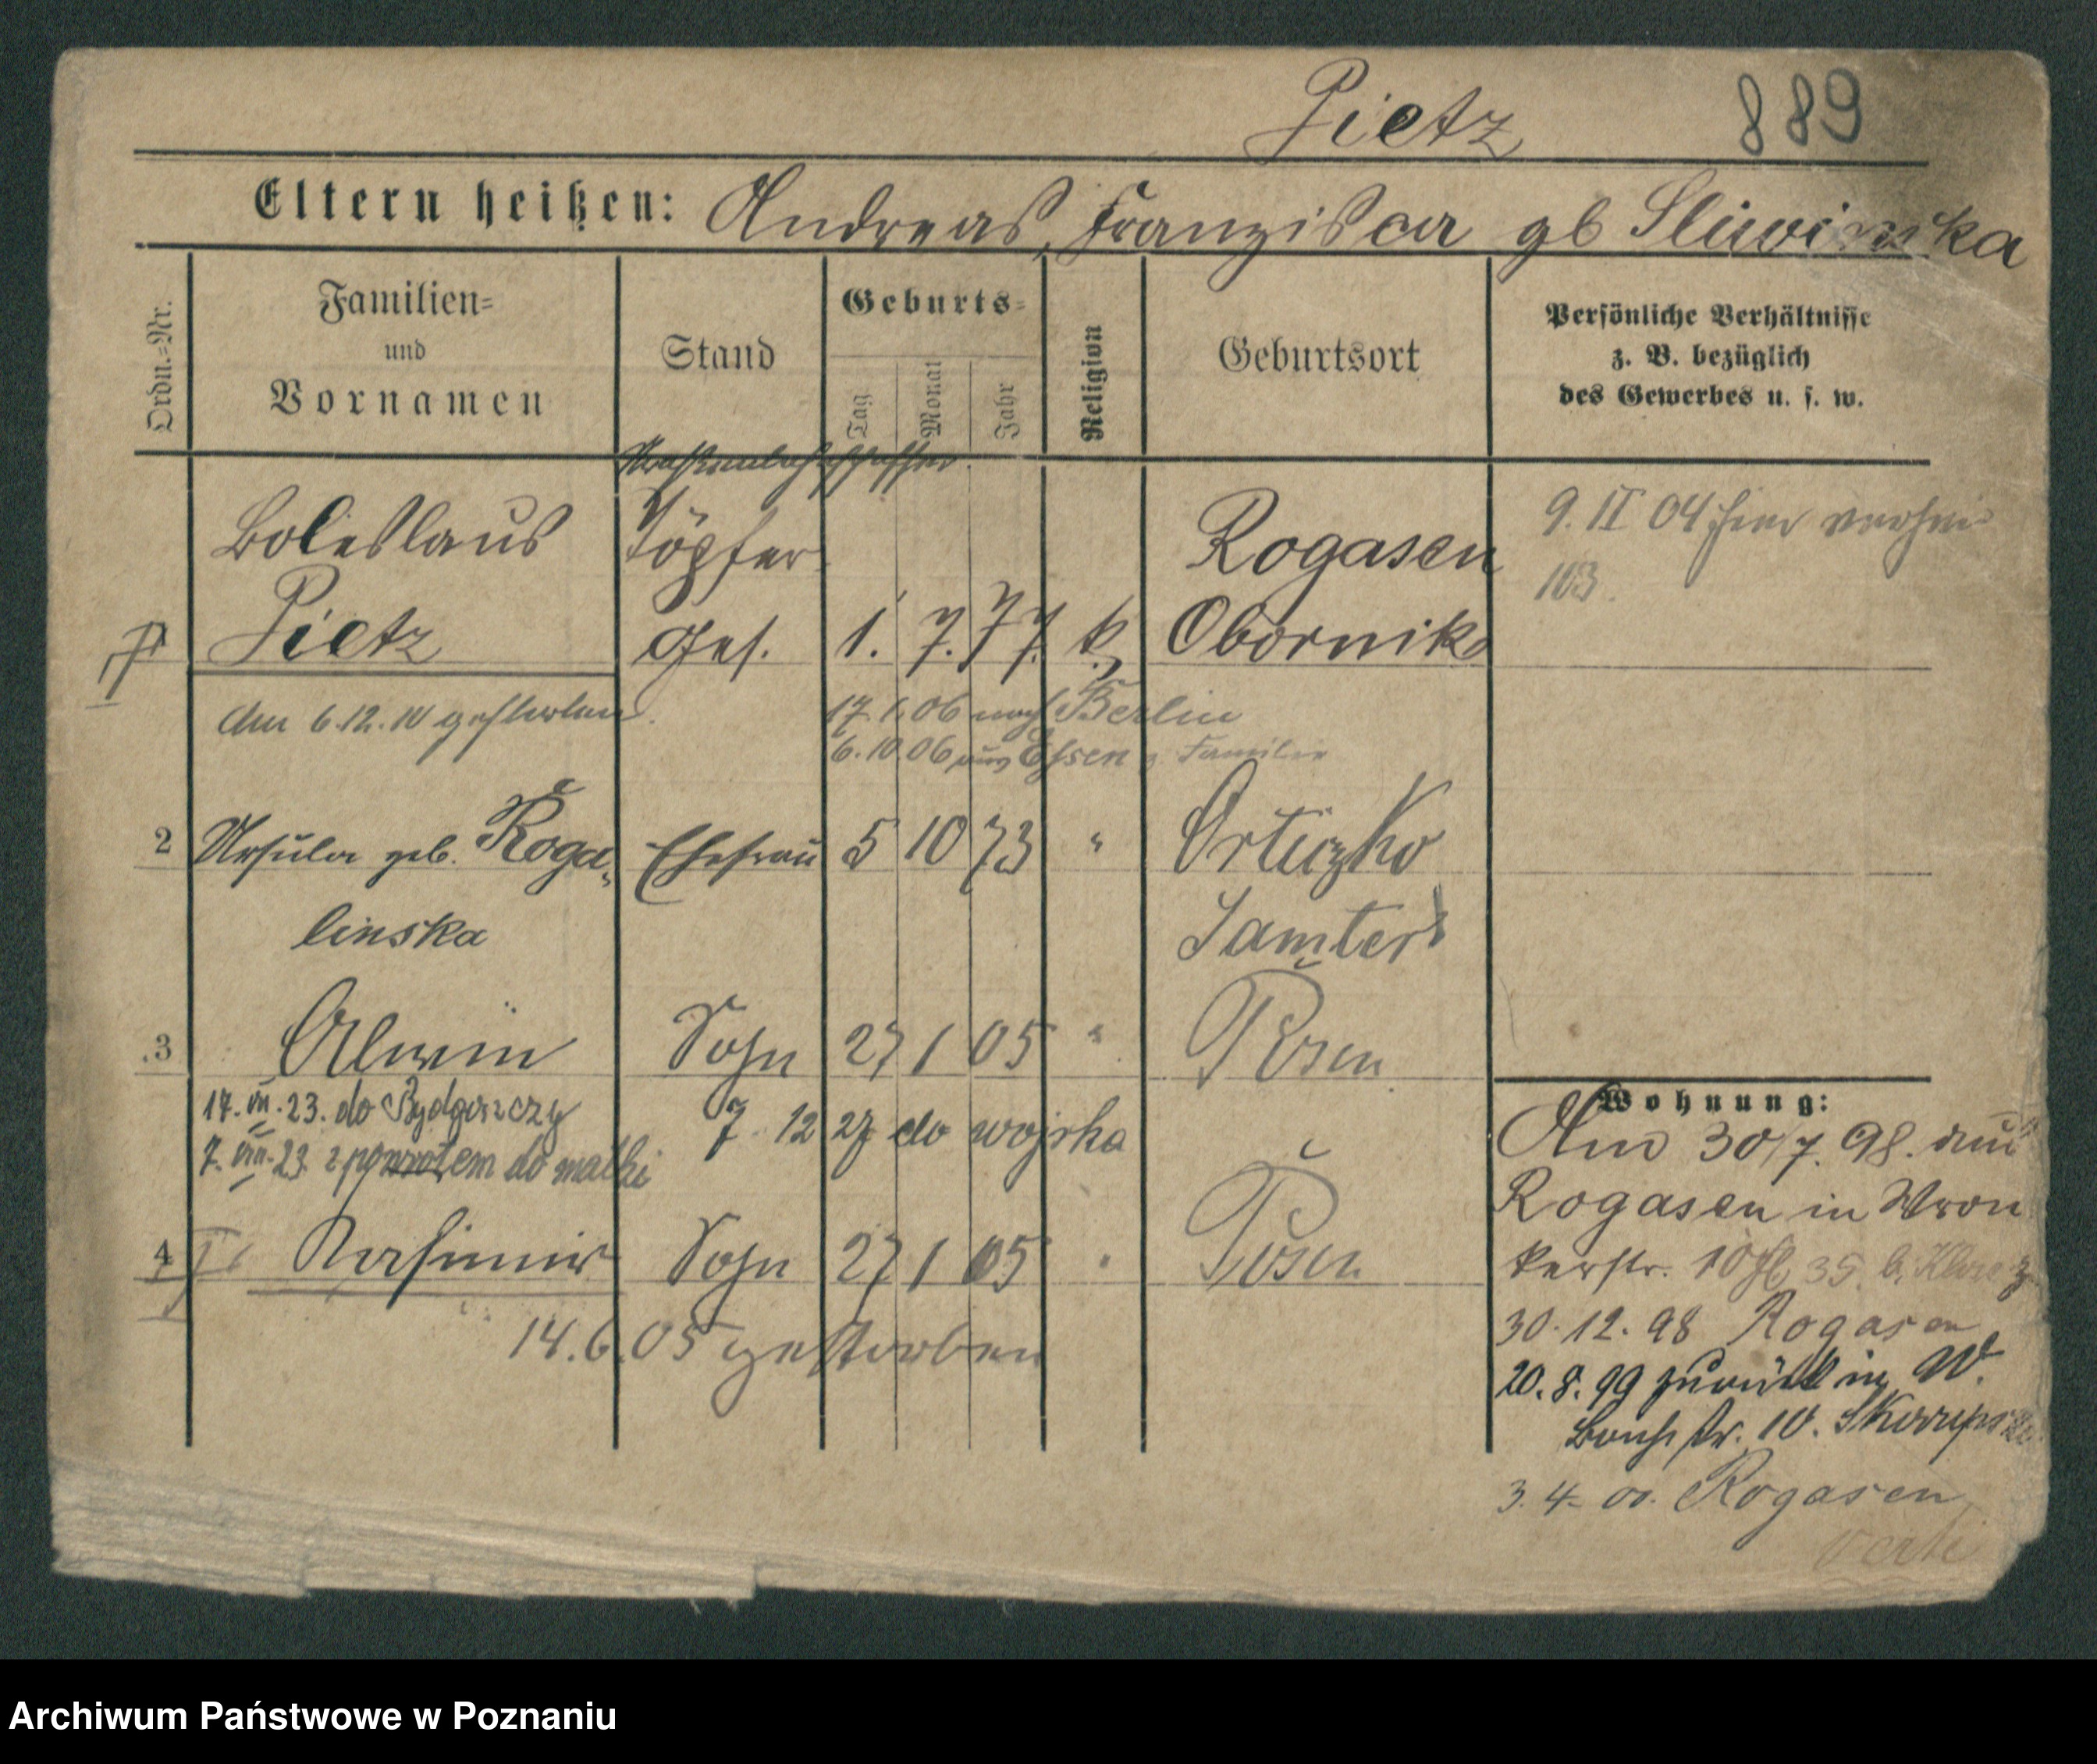 Pietz 889
Eltern heißen: Andreas, Franzisca gb Sliwinska
Ordn.=Nr.
Familien=
und
Vornamen
Stand
Geburts=
Tag
Monat
Jahr
Religion
Geburtsort
Persönliche Verhältnisse
z. B. bezüglich
des Gewerbes u. s. w.
Boleslaus Töpfer Rogasen 9. II 04
103.
Pietz Ges. 1. 7. 77. k. Obornik
Am 6.12.10 gestorben. 17.1.06 nach Berlin
6.10.06 aus Essen z. Familie
2 Ursula geb. Roga- Ehefrau 5 10 73 "
linska Samter
3 Alwin Sohn 27 1 05 " Posen
17. VII. 23. do Bydgoszczy 7. 12 27 do wojska
7. VIII. 23 z powrotem do matki
4 Kasimir Sohn 27 1 05 " Posen
14.6.05 gestorben
Wohnung:
Am 30/7. 98. aus
Rogasen in Wron
kerstr. 10
30.12.98 Rogasen
20.8.99 zurück in W.
10.
3.4.00. Rogasen
verte
Archiwum Państwowe w Poznaniu